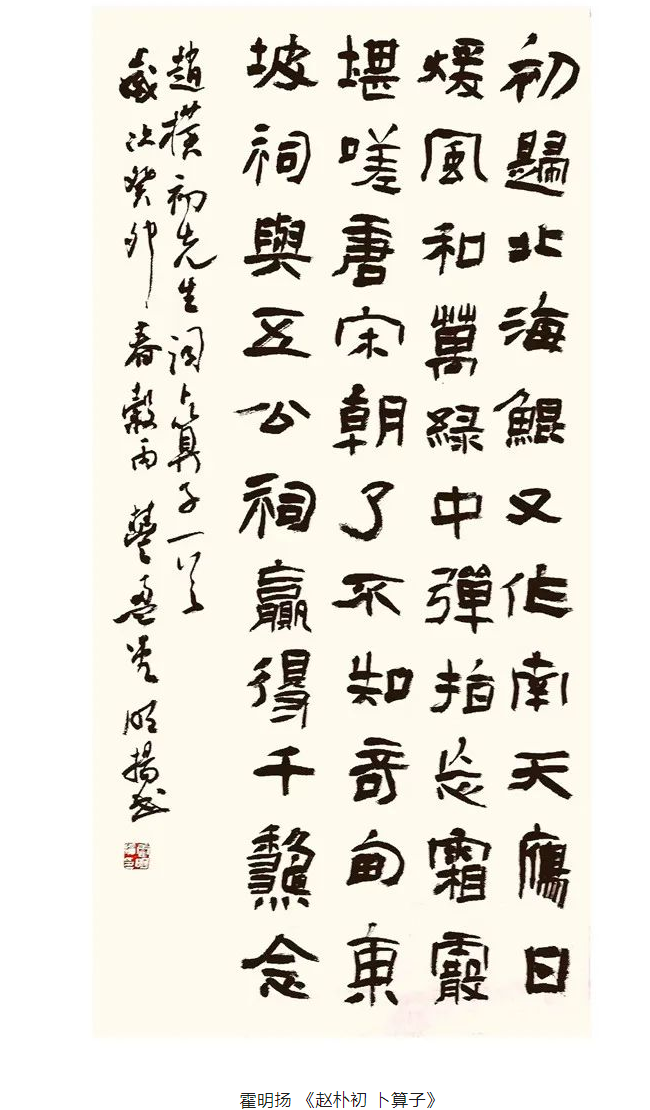 初歸北海鯤又作南天鴈日
煖風和萬綠中彈指忘霜霰
堪嗟唐宋朝了不知奇甸東
坡祠與五公祠贏得千龝念
趙樸初先生詞卜算子一首
歲次癸卯春穀雨 明揚書
霍明扬 《赵朴初 卜算子》